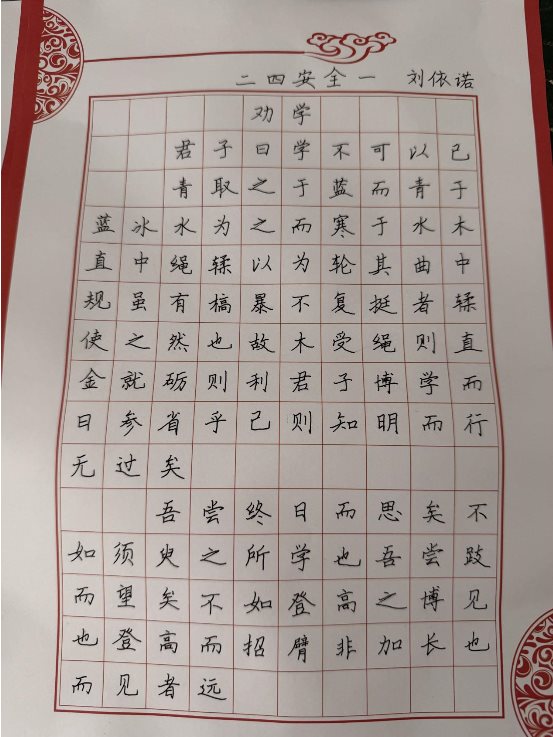 二四安全一 刘依诺
劝学
君子曰学不可以已
青取之于蓝而青于
蓝冰水为之而寒于水木
直中绳輮以为轮其曲中
规虽有槁暴不复挺者輮
使之然也故木受绳则直
金就砺则利君子博学而
日参省乎己则知明而行
无过矣
吾尝终日而思矣不
如须臾之所学也吾尝跂
而望矣不如登高之博见
也登高而招臂非加长也
而见者远